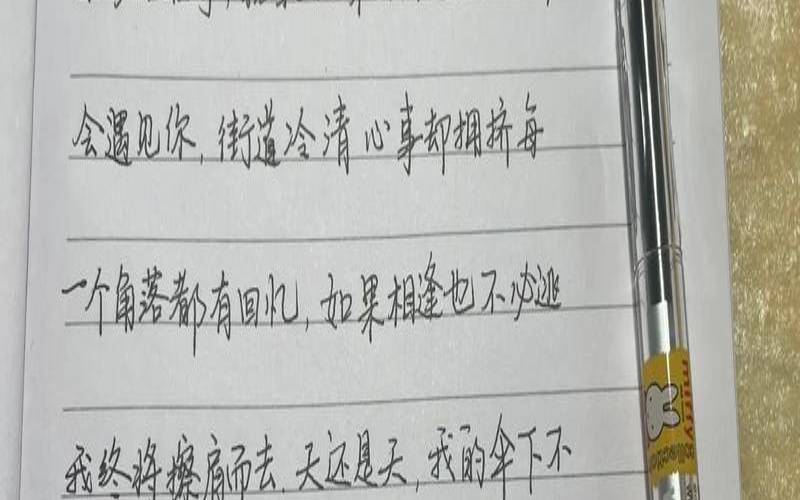 会遇见你,街道冷清心事却拥挤每
一个角落都有回忆,如果相逢也不必逃
我终将擦肩而去.天还是天,我的伞下不
miffy